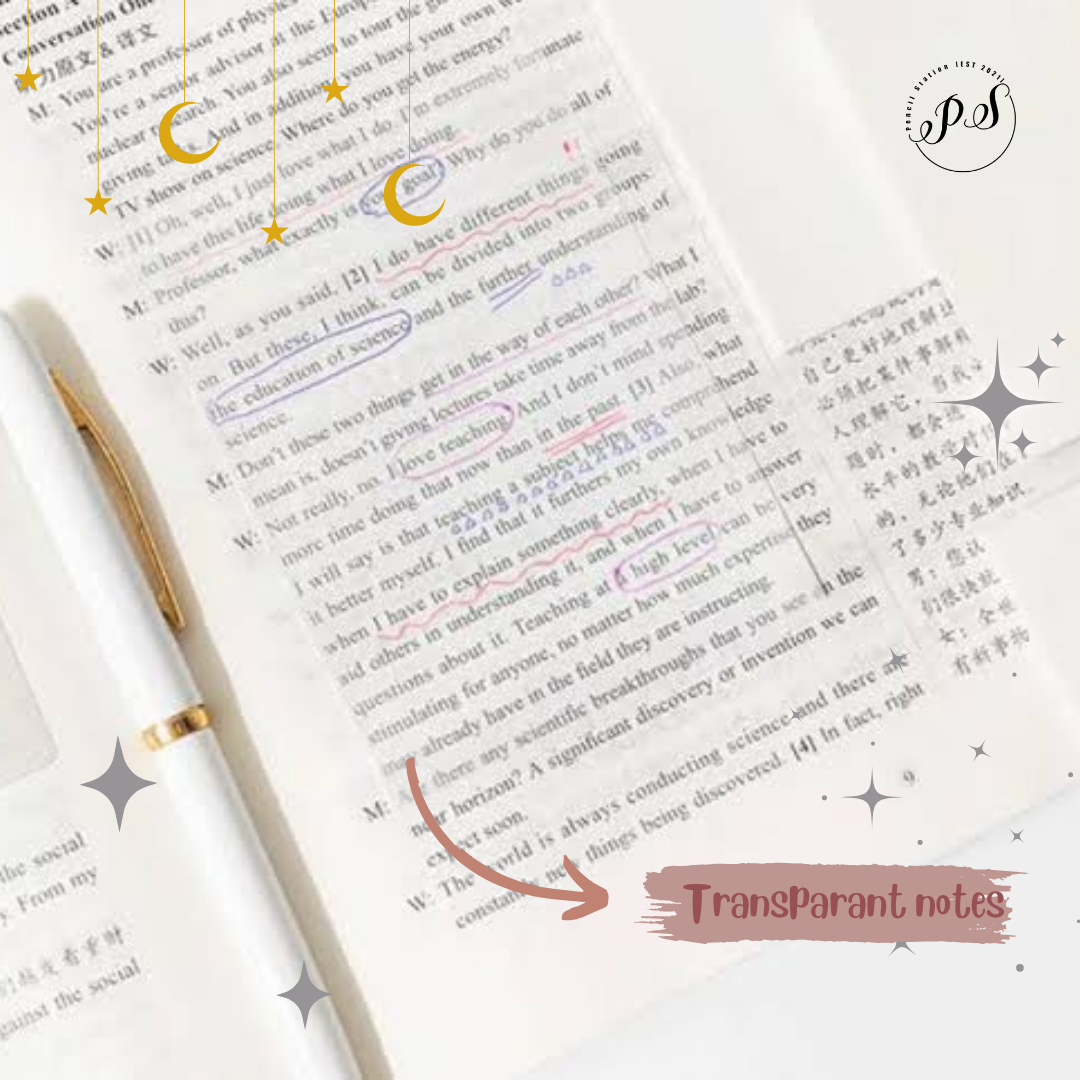 Conversation One
力原文 & 译文
M: You are a professor of physics
You're a senior advisor at the
nuclear research. You also seem to tour the
giving And in addition, you have your own
TV show on science. Where do you get the energy?
W: [1] Oh, well, I just love what I do. I'm extremely fortunate
to have this life doing what I love doing.
M: Professor, what exactly is your goal? Why do you do all of
this?
W: Well, as you said, [2] I do have different things going
on. But these, I think, can be divided into two groups:
the education of science and the further understanding of
science.
M: Don't these two things get in the way of each other? What I
mean is, doesn't giving lectures take time away from the lab?
W: Not really, no. I love teaching. And I don't mind spending
more time doing that now than in the past. [3] Also, what
I will say is that teaching a subject helps me comprehend
it better myself. I find that it furthers my own knowledge
when I have to explain something clearly, when I have to
aid others in understanding it, and when I have to answer
questions about it. Teaching at a high level can be very
stimulating for anyone, no matter how much expertise they
already have in the field they are instructing.
M: there any scientific breakthroughs that you see in the
near horizon? A significant discovery or invention we can
expect soon.
W: The world is always conducting science and there are
new things being discovered. [4] In fact, right
9
自己更好地理解
人理解它，
随时，都会
水平的教
的，无论他们在
了多少专业知识
男：您认
女：
有新事物
the social
From my
against the social
Pencil Station (EST 2021)
PS
Transparant notes